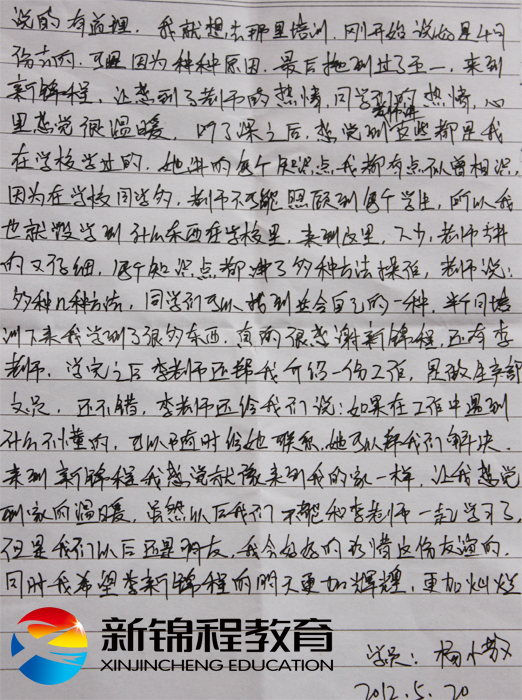 说的有道理，我就想去那里培训，刚开始说好是4月
份去的，可是因为种种原因，最后拖到过了五一，来到
新锦程，让感到了老师的热情，同学们的热情，心
里感觉很温暖，听了
老师讲
课之后，感觉到这些都是我
在学校学过的，她讲的每个知识点我都有点似曾相识，
因为在学校同学多，老师不可能照顾到每个学生，所以我
也就没学到什么东西在学校里，来到这里，人少，老师讲
的又仔细，每个知识点都讲了多种方法操作，老师说：
多种几种方法，同学们可以找到适合自己的一种，半个月培
训下来我学到了很多东西，真的很感谢新锦程，还有李
老师，学完之后李老师还帮我介绍一份工作，是做生产部
文员，还不错，李老师还给我们说：如果在工作中遇到
什么不懂的，可以随时给她联系，她可以帮我们解决，
来到新锦程我感觉就像来到我的家一样，让我感觉
到家的温暖，虽然以后我们不能和李老师一起学习了，
但是我们以后还是朋友，我会好好的珍惜这份友谊的，
同时我希望李新锦程的明天更加辉煌，更加灿烂
新锦程教育
XINJINCHENG EDUCATION
学员：杨小
2012.5.20